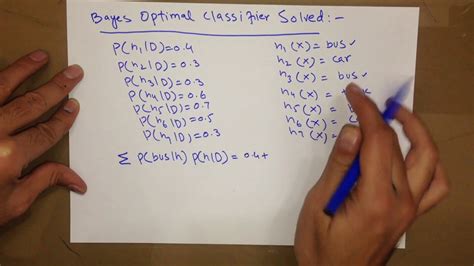 Bayes Optimal Classifier Solved:-
P(h₁|D)=0.4
P(h₂|D)=0.3
P(h₃|D)=0.3
P(h₄|D)=0.6
P(h₅|D)=0.7
P(h₆|D)=0.5
P(h₇|D)=0.3
Σ P(bus|h) P(h|D)=0.4+
h₁(x)= bus✓
h₂(x)= car
h₃(x)= bus✓
h₄(x)=
h₅(x)=
h₆(x)=
h₇(x)=